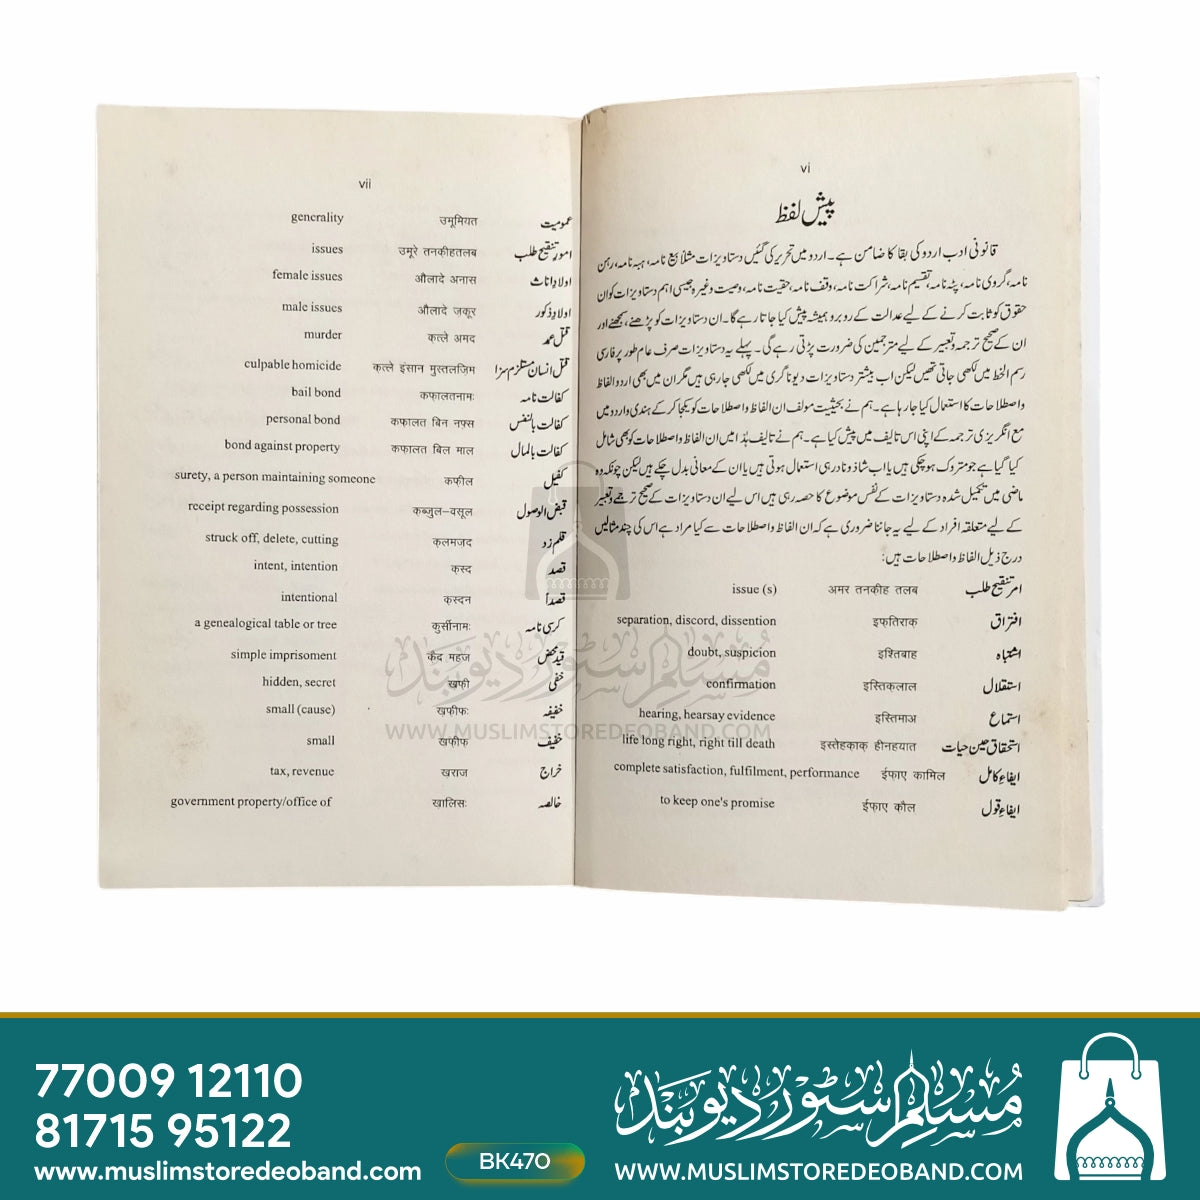 vi
پیش لفظ
قانونی ادب اردو کی بقا کا ضامن ہے۔ اردو میں تحریر کی گئیں دستاویزات مثلاً بیع نامہ، ہبہ نامہ، رہن
نامہ، گروی نامہ، پٹہ نامہ، تقسیم نامہ، شراکت نامہ، وقف نامہ، حقیت نامہ، وصیت وغیرہ جیسی اہم دستاویزات کو ان
حقوق کو ثابت کرنے کے لیے عدالت کے روبرو ہمیشہ پیش کیا جاتا رہے گا۔ ان دستاویزات کو پڑھنے، سمجھنے اور
ان کے صحیح ترجمہ و تعبیر کے لیے مترجمین کی ضرورت پڑتی رہے گی۔ پہلے یہ دستاویزات صرف عام طور پر فارسی
رسم الخط میں لکھی جاتی تھیں لیکن اب بیشتر دستاویزات دیوناگری میں لکھی جارہی ہیں مگر ان میں بھی اردو الفاظ
و اصطلاحات کا استعمال کیا جارہا ہے۔ ہم نے بحیثیت مولف ان الفاظ و اصطلاحات کو یکجا کر کے ہندی و اردو میں
مع انگریزی ترجمہ کے اپنی اس تالیف میں پیش کیا ہے۔ ہم نے تالیف ہٰذا میں ان الفاظ و اصطلاحات کو بھی شامل
کیا گیا ہے جو متروک ہوچکی ہیں یا اب شاذ و نادر ہی استعمال ہوتی ہیں یا ان کے معانی بدل چکے ہیں لیکن چونکہ وہ
ماضی میں تکمیل شدہ دستاویزات کے نفس موضوع کا حصہ رہی ہیں اس لیے ان دستاویزات کے صحیح ترجمے و تعبیر
کے لیے متعلقہ افراد کے لیے یہ جاننا ضروری ہے کہ ان الفاظ و اصطلاحات سے کیا مراد ہے اس کی چند مثالیں
درج ذیل الفاظ و اصطلاحات ہیں:
امر تنقیح طلب अमर तनकीह तलब issue (s)
افتراق इफ़्तिराक़ separation, discord, dissention
اشتباہ इश्तिबाह doubt, suspicion
استقلال इस्तिक़लाल confirmation
استماع इस्तिमाअ hearing, hearsay evidence
استحقاق حین حیات इस्तेहक़ाक़ हीनहयात life long right, right till death
ایفاءِ کامل ईफाए कामिल complete satisfaction, fulfilment, performance
ایفاءِ قول ईफ़ाए क़ौल to keep one's promise
vii
عمومیت उमूमियत generality
امورِ تنقیح طلب उमूरे तनक़ीहतलब issues
اولادِ اناث औलादे अनास female issues
اولادِ ذکور औलादे ज़कूर male issues
قتل عمد क़त्ले अमद murder
قتل انسان مستلزم سزا क़त्ले इंसान मुस्तलज़िम culpable homicide
کفالت نامہ कफ़ालतनामः bail bond
کفالت بالنفس कफ़ालत बिन नफ़्स personal bond
کفالت بالمال कफ़ालत बिल माल bond against property
کفیل कफ़ील surety, a person maintaining someone
قبض الوصول क़ब्ज़ुल-वसूल receipt regarding possession
قلم زد क़लमज़द struck off, delete, cutting
قصد क़स्द intent, intention
قصداً क़स्दन intentional
کرسی نامہ कुर्सीनामः a genealogical table or tree
قید محض क़ैद महज़ simple imprisoment
خفی ख़फ़ी hidden, secret
خفیفہ ख़फ़ीफ़ः small (cause)
خفیف ख़फ़ीफ़ small
خراج ख़राज tax, revenue
خالصہ ख़ालिसः government property/office of
مسلم سٹور دیوبند
WWW.MUSLIMSTOREDEOBAND.COM
77009 12110
81715 95122
www.muslimstoredeoband.com
BK470
مسلم سٹور دیوبند
WWW.MUSLIMSTOREDEOBAND.COM